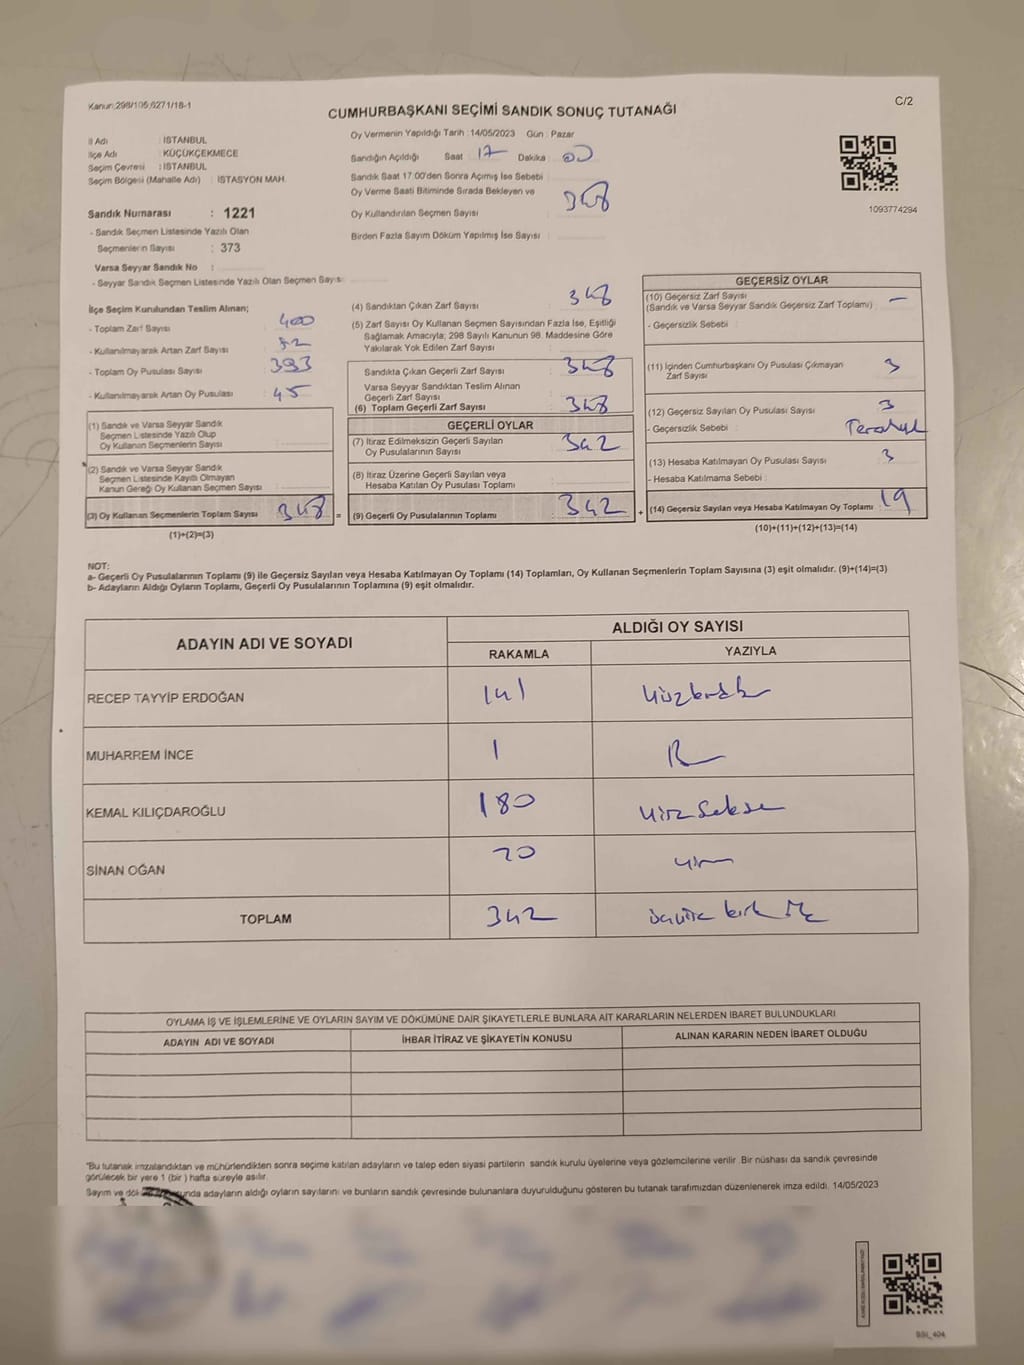 Kanun:298/105,6271/18-1
C/2
CUMHURBAŞKANI SEÇİMİ SANDIK SONUÇ TUTANAĞI
İl Adı : İSTANBUL
İlçe Adı : KÜÇÜKÇEKMECE
Seçim Çevresi : İSTANBUL
Seçim Bölgesi (Mahalle Adı) : İSTASYON MAH.
Sandık Numarası : 1221
- Sandık Seçmen Listesinde Yazılı Olan
Seçmenlerin Sayısı : 373
Varsa Seyyar Sandık No :
- Seyyar Sandık Seçmen Listesinde Yazılı Olan Seçmen Sayısı:
Oy Vermenin Yapıldığı Tarih :14/05/2023 Gün : Pazar
Sandığın Açıldığı Saat 17 Dakika 00
Sandık Saat 17:00'den Sonra Açımış İse Sebebi
Oy Verme Saati Bitiminde Sırada Bekleyen ve
Oy Kullandırılan Seçmen Sayısı : 348
Birden Fazla Sayım Döküm Yapılmış İse Sayısı :
1093774294
İlçe Seçim Kurulundan Teslim Alınan;
- Toplam Zarf Sayısı : 400
- Kullanılmayarak Artan Zarf Sayısı : 52
- Toplam Oy Pusulası Sayısı : 393
- Kullanılmayarak Artan Oy Pusulası : 45
(1) Sandık ve Varsa Seyyar Sandık
Seçmen Listesinde Yazılı Olup
Oy Kullanan Seçmenlerin Sayısı :
(2) Sandık ve Varsa Seyyar Sandık
Seçmen Listesinde Kayıtlı Olmayan
Kanun Gereği Oy Kullanan Seçmen Sayısı :
(3) Oy Kullanan Seçmenlerin Toplam Sayısı : 348 =
(1)+(2)=(3)
(4) Sandıktan Çıkan Zarf Sayısı : 348
(5) Zarf Sayısı Oy Kullanan Seçmen Sayısından Fazla İse, Eşitliği
Sağlamak Amacıyla; 298 Sayılı Kanunun 98. Maddesine Göre
Yakılarak Yok Edilen Zarf Sayısı :
Sandıkta Çıkan Geçerli Zarf Sayısı : 348
Varsa Seyyar Sandıktan Teslim Alınan
Geçerli Zarf Sayısı :
(6) Toplam Geçerli Zarf Sayısı : 348
GEÇERLİ OYLAR
(7) İtiraz Edilmeksizin Geçerli Sayılan
Oy Pusulalarının Sayısı : 342
(8) İtiraz Üzerine Geçerli Sayılan veya
Hesaba Katılan Oy Pusulası Toplamı :
(9) Geçerli Oy Pusulalarının Toplamı : 342 +
GEÇERSİZ OYLAR
(10) Geçersiz Zarf Sayısı : —
(Sandık ve Varsa Seyyar Sandık Geçersiz Zarf Toplamı)
- Geçersizlik Sebebi :
(11) İçinden Cumhurbaşkanı Oy Pusulası Çıkmayan
Zarf Sayısı : 3
(12) Geçersiz Sayılan Oy Pusulası Sayısı : 3
- Geçersizlik Sebebi :
(13) Hesaba Katılmayan Oy Pusulası Sayısı : 3
- Hesaba Katılmama Sebebi :
(14) Geçersiz Sayılan veya Hesaba Katılmayan Oy Toplamı : 19
(10)+(11)+(12)+(13)=(14)
NOT:
a- Geçerli Oy Pusulalarının Toplamı (9) ile Geçersiz Sayılan veya Hesaba Katılmayan Oy Toplamı (14) Toplamları, Oy Kullanan Seçmenlerin Toplam Sayısına (3) eşit olmalıdır. (9)+(14)=(3)
b- Adayların Aldığı Oyların Toplamı, Geçerli Oy Pusulalarının Toplamına (9) eşit olmalıdır.
ADAYIN ADI VE SOYADI
ALDIĞI OY SAYISI
RAKAMLA YAZIYLA
RECEP TAYYİP ERDOĞAN 141 Yüzkırkbir
MUHARREM İNCE 1 Bir
KEMAL KILIÇDAROĞLU 180 Yüz Seksen
SİNAN OĞAN 20 Yirmi
TOPLAM 342 üçyüz kırk iki
OYLAMA İŞ VE İŞLEMLERİNE VE OYLARIN SAYIM VE DÖKÜMÜNE DAİR ŞİKAYETLERLE BUNLARA AİT KARARLARIN NELERDEN İBARET BULUNDUKLARI
ADAYIN ADI VE SOYADI İHBAR İTİRAZ VE ŞİKAYETİN KONUSU ALINAN KARARIN NEDEN İBARET OLDUĞU
"Bu tutanak imzalandıktan ve mühürlendikten sonra seçime katılan adayların ve talep eden siyasi partilerin sandık kurulu üyelerine veya gözlemcilerine verilir .Bir nüshası da sandık çevresinde
görülecek bir yere 1 (bir ) hafta süreyle asılır.
Sayım ve adayların aldığı oyların sayılarını ve bunların sandık çevresinde bulunanlara duyurulduğunu gösteren bu tutanak tarafımızdan düzenlenerek imza edildi. 14/05/2023